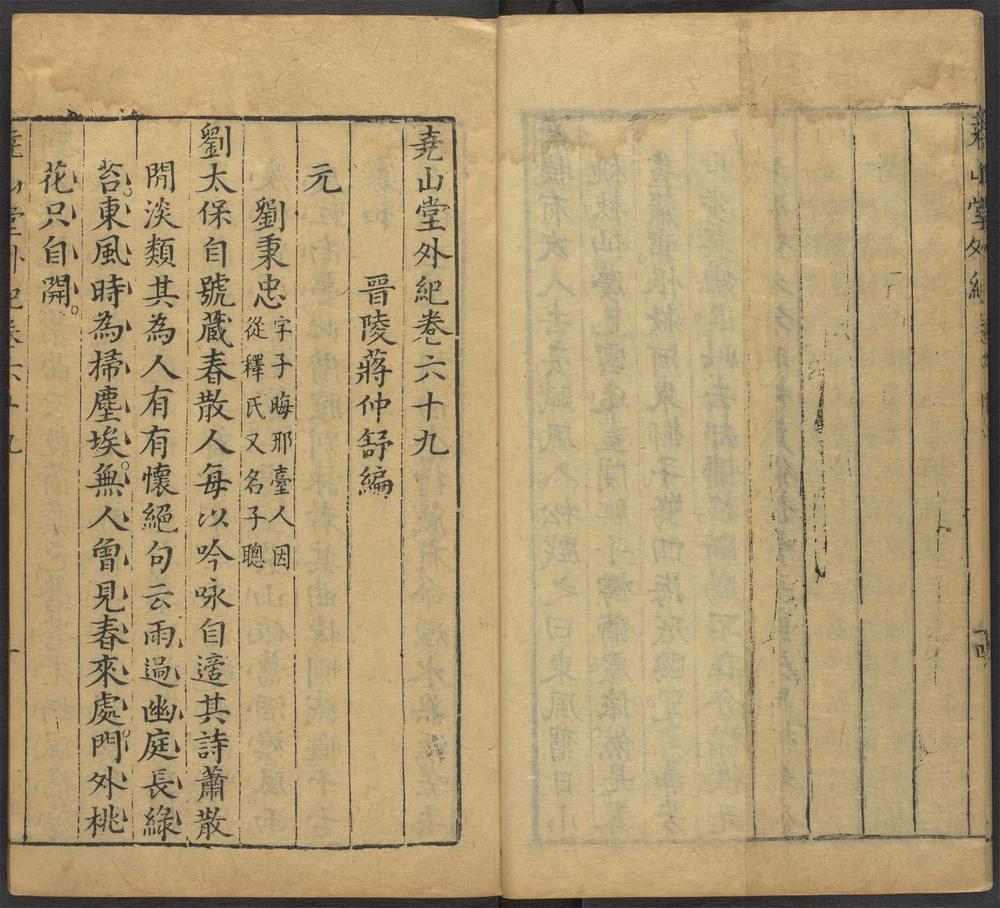 堯山堂外紀
堯山堂外紀卷六十九
晉陵蔣仲舒編
元
劉秉忠字子晦邢臺人因
從釋氏又名子聰
劉太保自號藏春散人每以吟咏自適其詩蕭散
閒淡類其為人有有懷絕句云雨過幽庭長綠
苔。東風時為掃塵埃。無人曾見春來處。門外桃
花只自開。
堯山堂外紀卷六十九 一